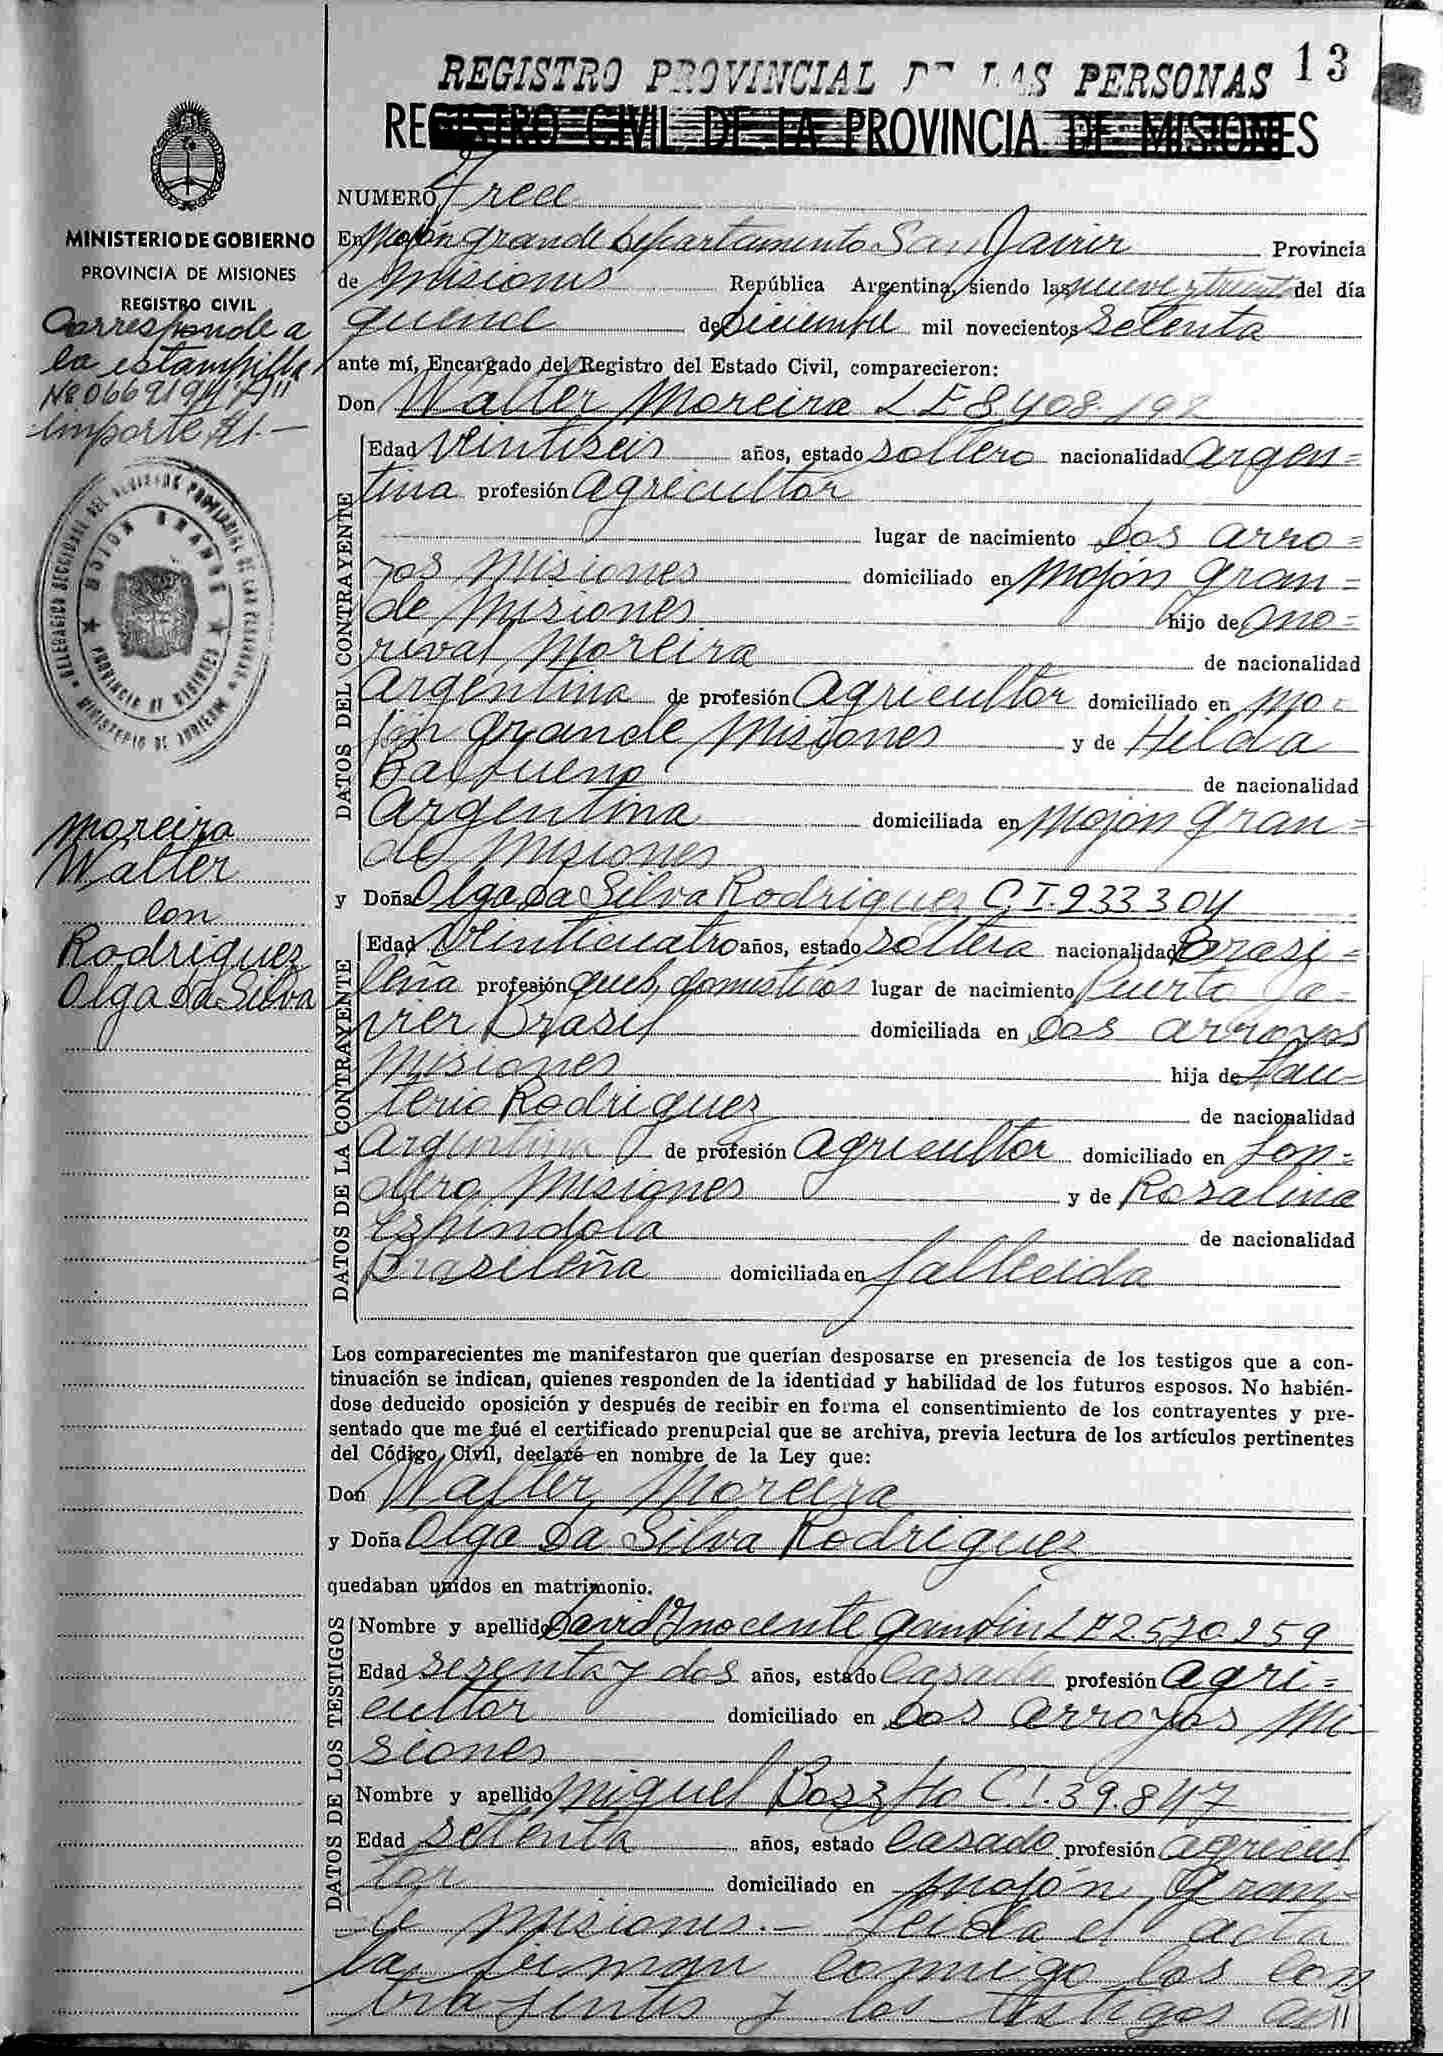 13
REGISTRO PROVINCIAL DE LAS PERSONAS
REGISTRO CIVIL DE LA PROVINCIA DE MISIONES
MINISTERIO DE GOBIERNO
PROVINCIA DE MISIONES
REGISTRO CIVIL
Corresponde a
la estampilla
Importe $1.—
DELEGACION SECCIONAL DEL REGISTRO PROVINCIAL DE LAS PERSONAS
MOJON GRANDE
PROVINCIA DE MISIONES
MINISTERIO DE GOBIERNO
Moreira
Walter
con
Rodriguez
Olga Da Silva
NUMERO Trece
En Mojón grande Departamento San Javier Provincia
de Misiones República Argentina, siendo las nueve y treinta del día
quince de Diciembre mil novecientos setenta
ante mí, Encargado del Registro del Estado Civil, comparecieron:
Don Walter Moreira L E 8408.192
DATOS DEL CONTRAYENTE
Edad Veintiseis años, estado soltero nacionalidad Argen=
tina profesión agricultor
lugar de nacimiento Dos Arro=
yos Misiones domiciliado en Mojón Gran=
de Misiones hijo de Ono=
rival Moreira de nacionalidad
Argentina de profesión Agricultor domiciliado en Mo=
jon grande Misiones y de Hilda
Balbueno de nacionalidad
argentina domiciliada en Mojon Gran=
de Misiones
y Doña Olga Da Silva Rodriguez C I. 233304
DATOS DE LA CONTRAYENTE
Edad Veinticuatro años, estado soltera nacionalidad Brasi=
leña profesión queh. domesticos lugar de nacimiento Puerto Ja=
vier Brasil domiciliada en Dos Arroyos
Misiones hija de Lau=
terio Rodriguez de nacionalidad
Argentina de profesión Agricultor domiciliado en
Misiones y de Rosalina
Espindola de nacionalidad
Brasileña domiciliada en fallecida
Los comparecientes me manifestaron que querían desposarse en presencia de los testigos que a con-
tinuación se indican, quienes responden de la identidad y habilidad de los futuros esposos. No habién-
dose deducido oposición y después de recibir en forma el consentimiento de los contrayentes y pre-
sentado que me fué el certificado prenupcial que se archiva, previa lectura de los artículos pertinentes
del Código Civil, declaré en nombre de la Ley que:
Don Walter Moreira
y Doña Olga Da Silva Rodriguez
quedaban unidos en matrimonio.
DATOS DE LOS TESTIGOS
Nombre y apellido David Inocente L E 2570259
Edad sesenta y dos años, estado casado profesión agri=
cultor domiciliado en Dos Arroyos, Mi-
siones
Nombre y apellido Miguel C. I. 39.847
Edad setenta años, estado casado profesión agricul
tor domiciliado en Mojón Gran=
de Misiones.— Leida el acta
la firman conmigo los con
trayentes y los testigos